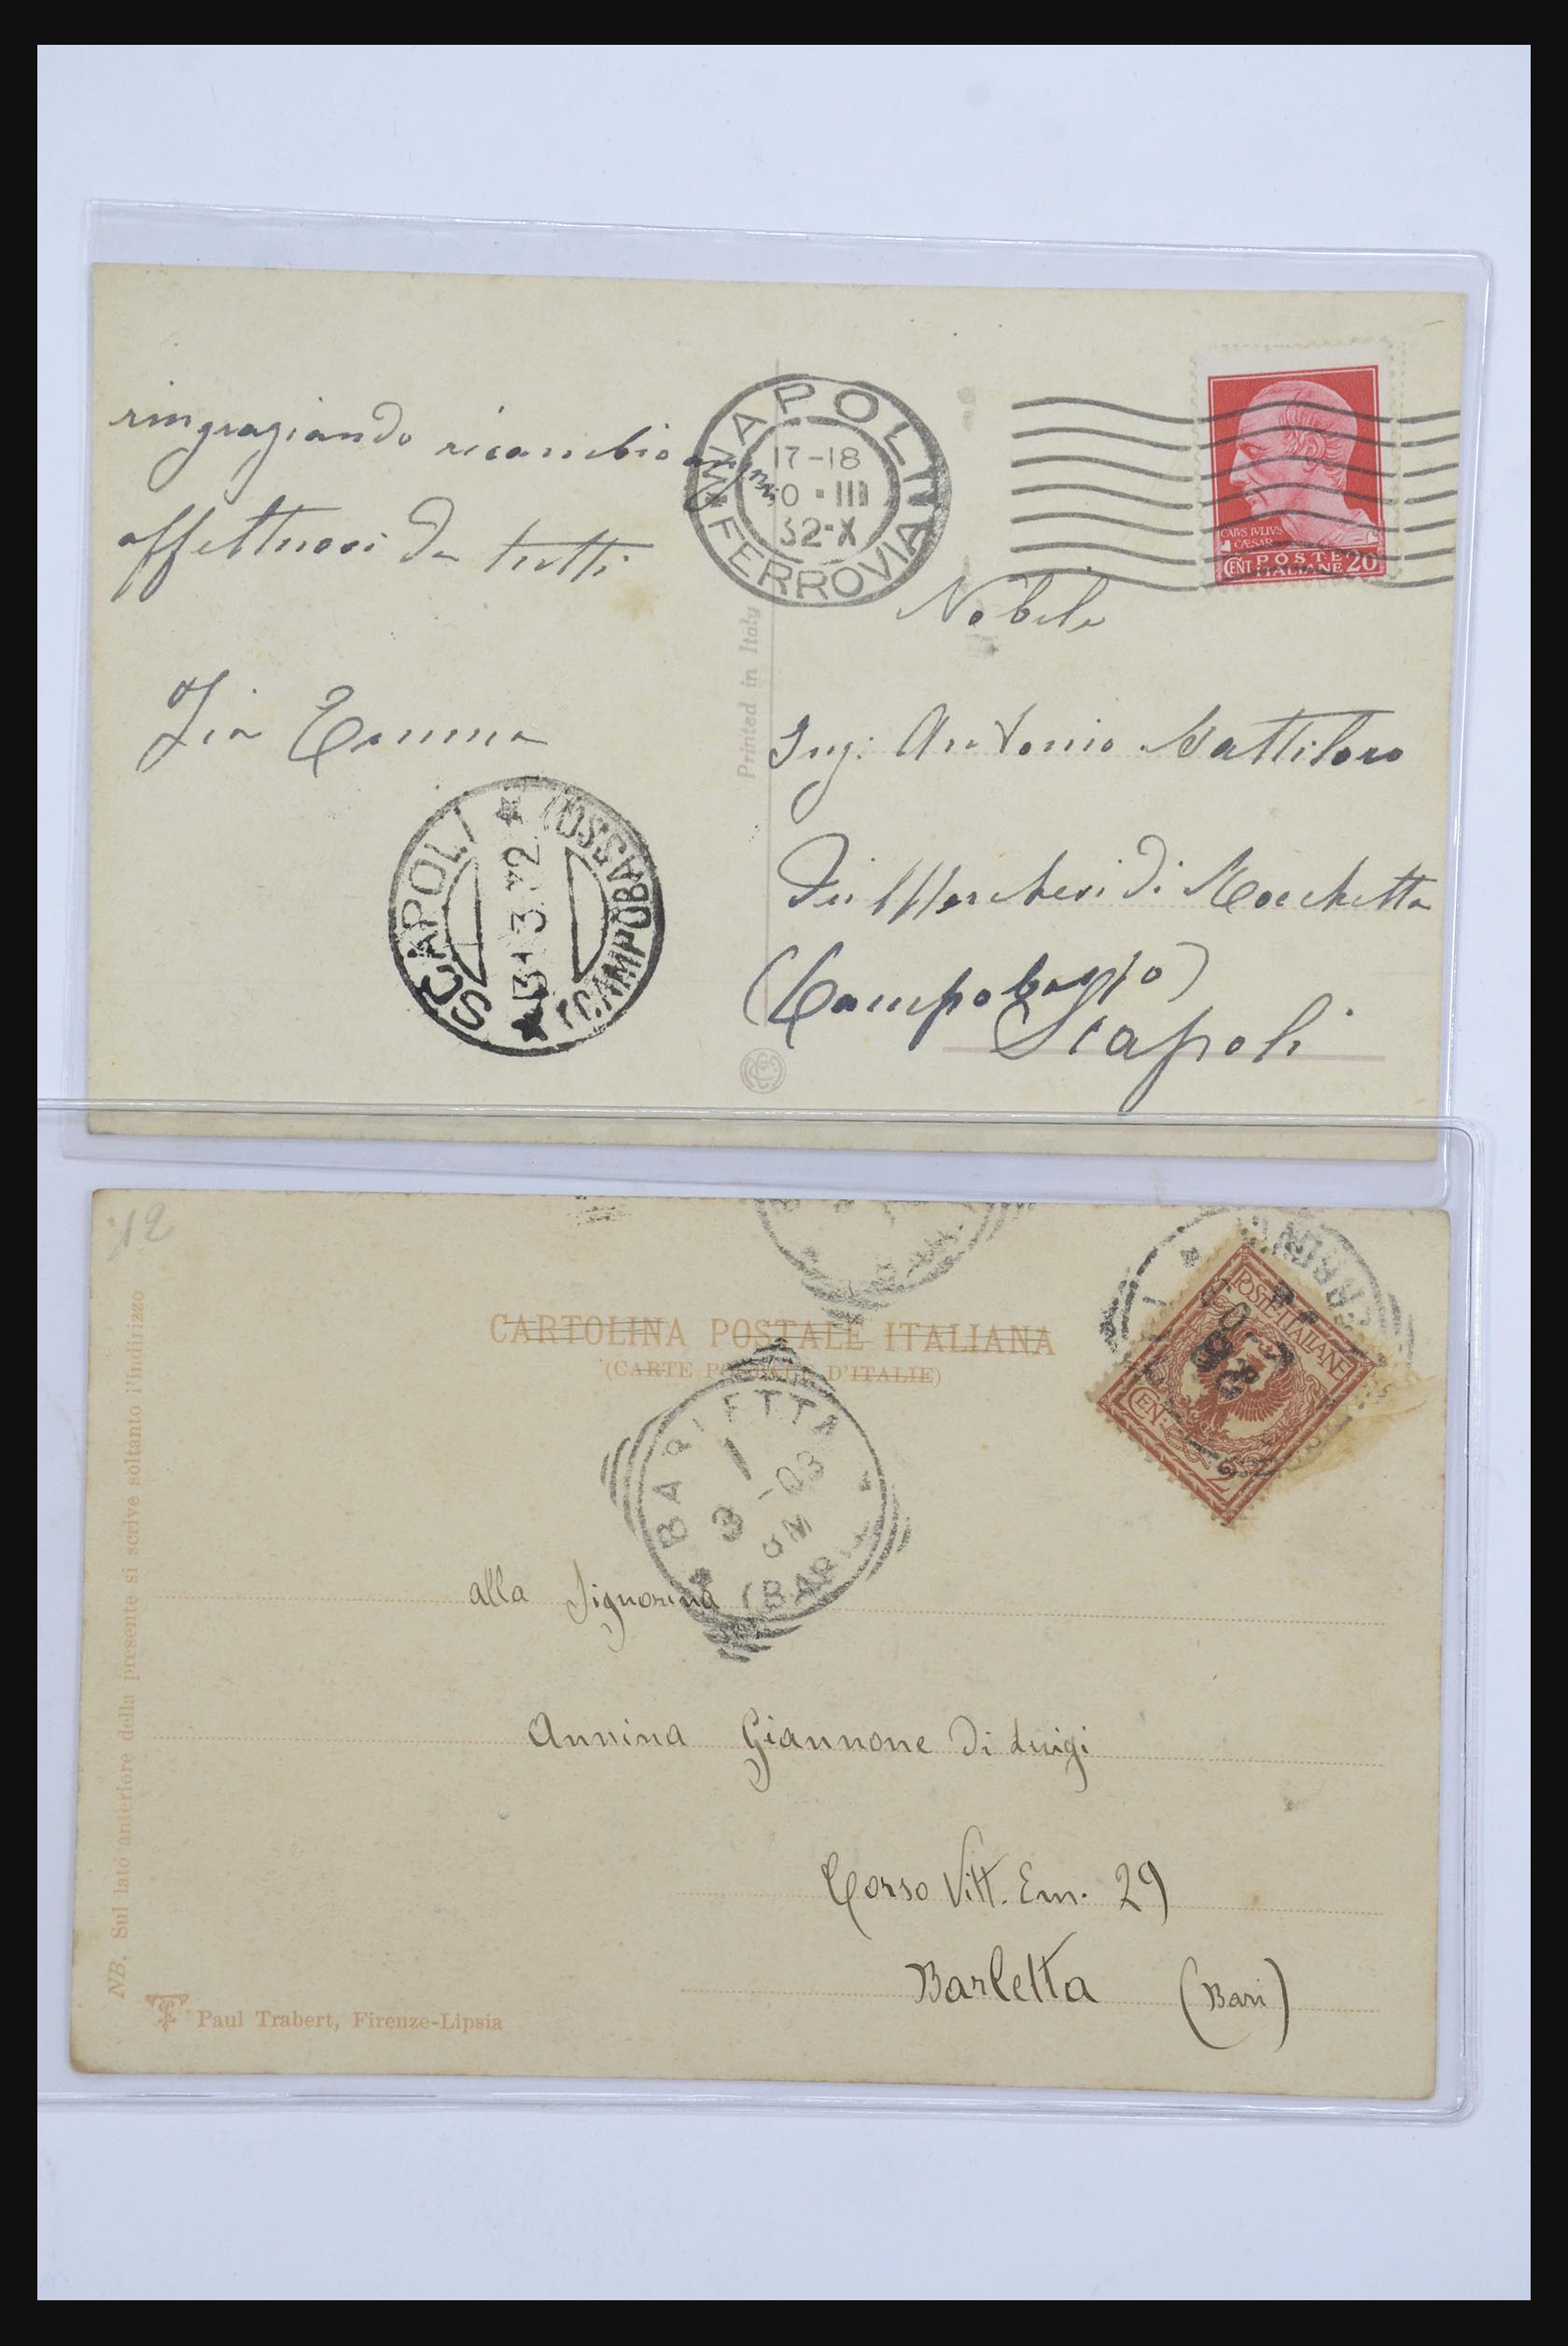 ringraziando ricambio auguri
affettuosi da tutti
Zia Emma
NAPOLI
17-18
30 · III
32-X
FERROVIA
CAIVS IVLIVS
CÆSAR
CENT POSTE ITALIANE 20
Nobile
Ing. Antonio Battiloro
dei Marchesi di Rocchetta
(Campobasso)
Scapoli
Printed in Italy
SCAPOLI
31·3·32
(CAMPOBASSO)
12
CARTOLINA POSTALE ITALIANA
(CARTE POSTALE D'ITALIE)
POSTE ITALIANE
CENT 2
BARLETTA
1
3 -03
(BARI)
alla Signorina
Annina Giannone di Luigi
Corso Vitt. Em. 29
Barletta (Bari)
NB. Sul lato anteriore della presente si scrive soltanto l'indirizzo
Paul Trabert, Firenze-Lipsia